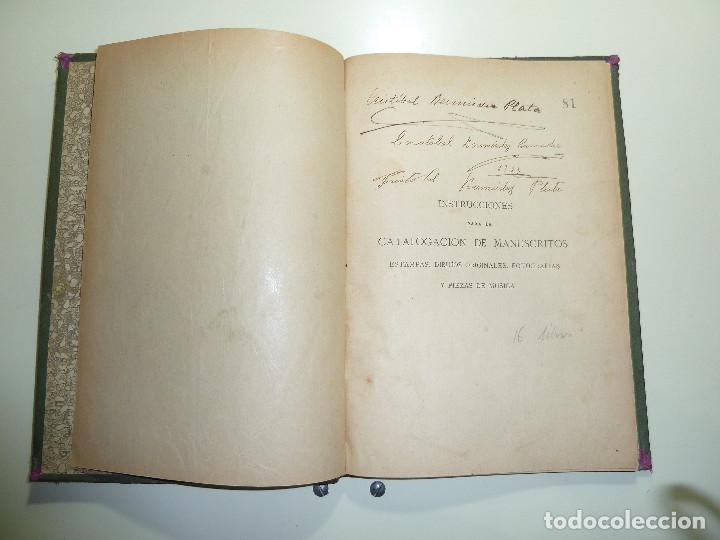 Cristóbal Bermúdez Plata
81
Cristobal Bermúdez
Cristobal Bermúdez Plata
INSTRUCCIONES
PARA LA
CATALOGACIÓN DE MANUSCRITOS
ESTAMPAS, DIBUJOS ORIGINALES, FOTOGRAFÍAS
Y PIEZAS DE MÚSICA
16
todocoleccion.net